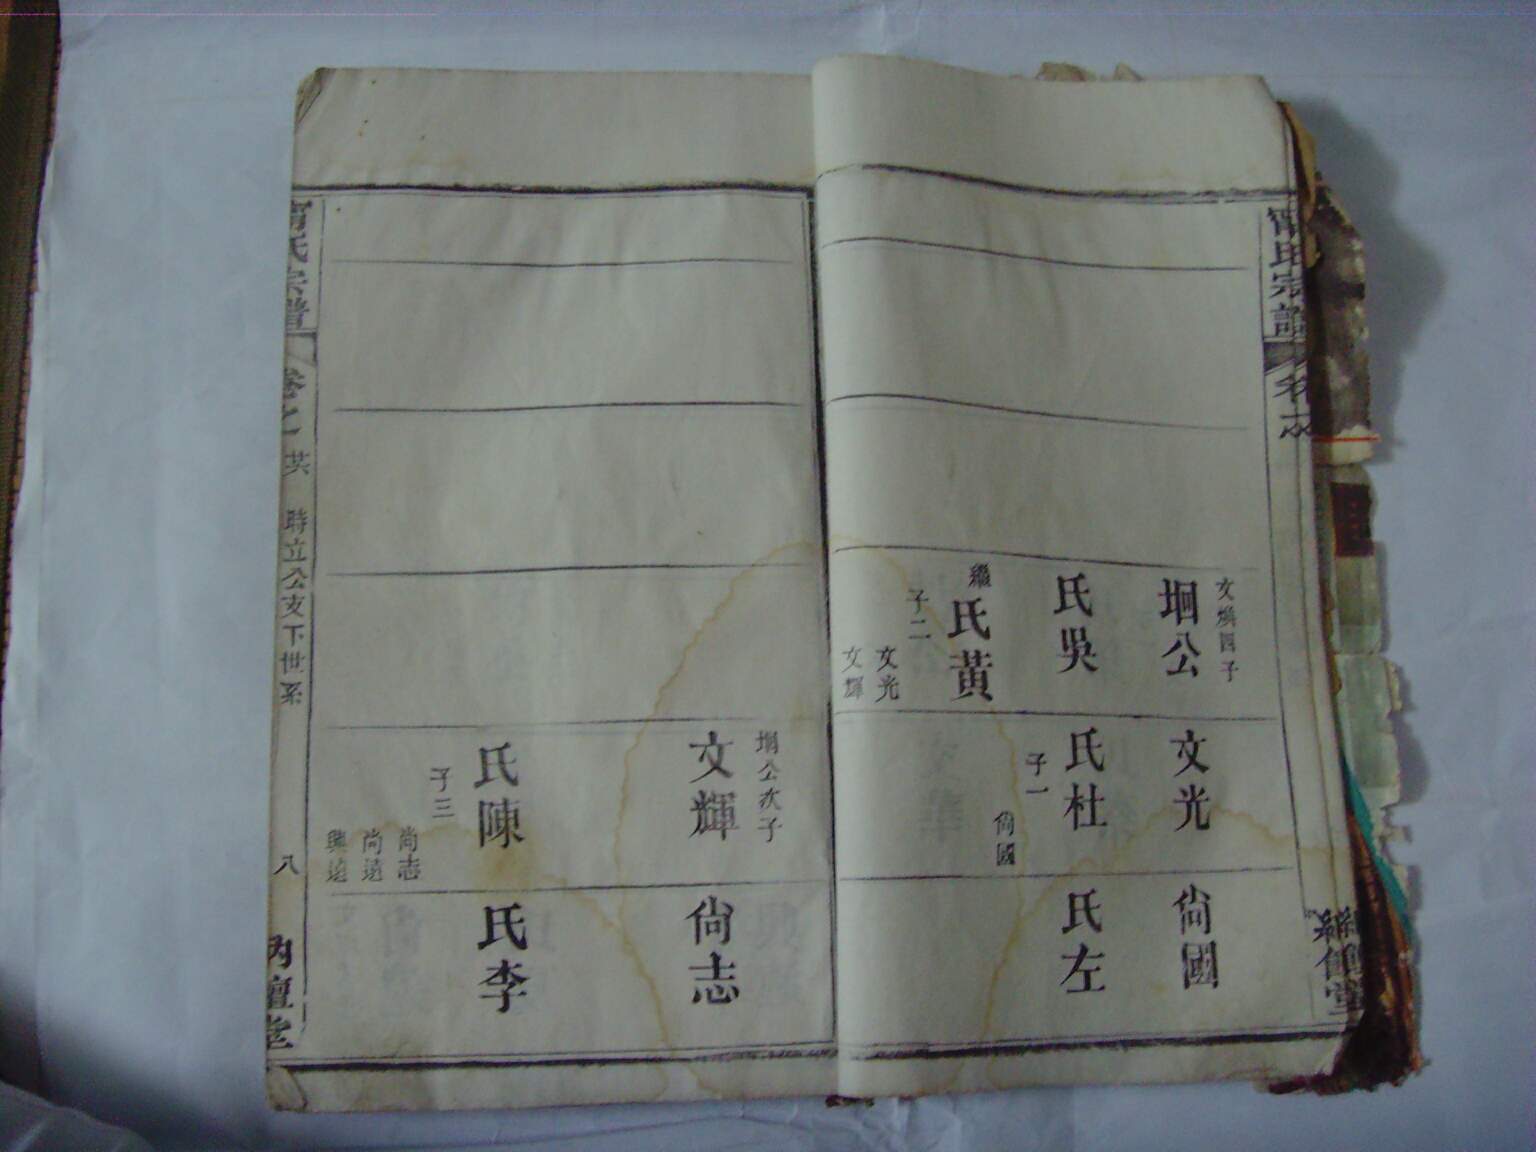 甯氏宗譜
文煥四子
坰公
氏吳
繼
氏黃
子二
文光
文輝
文光
氏杜
子一
尙國
尙國
氏左
坰公次子
文輝
氏陳
子三
尚志
尚遠
興遠
尙志
氏李
甯氏宗譜
卷之一
時立公支下世系
八